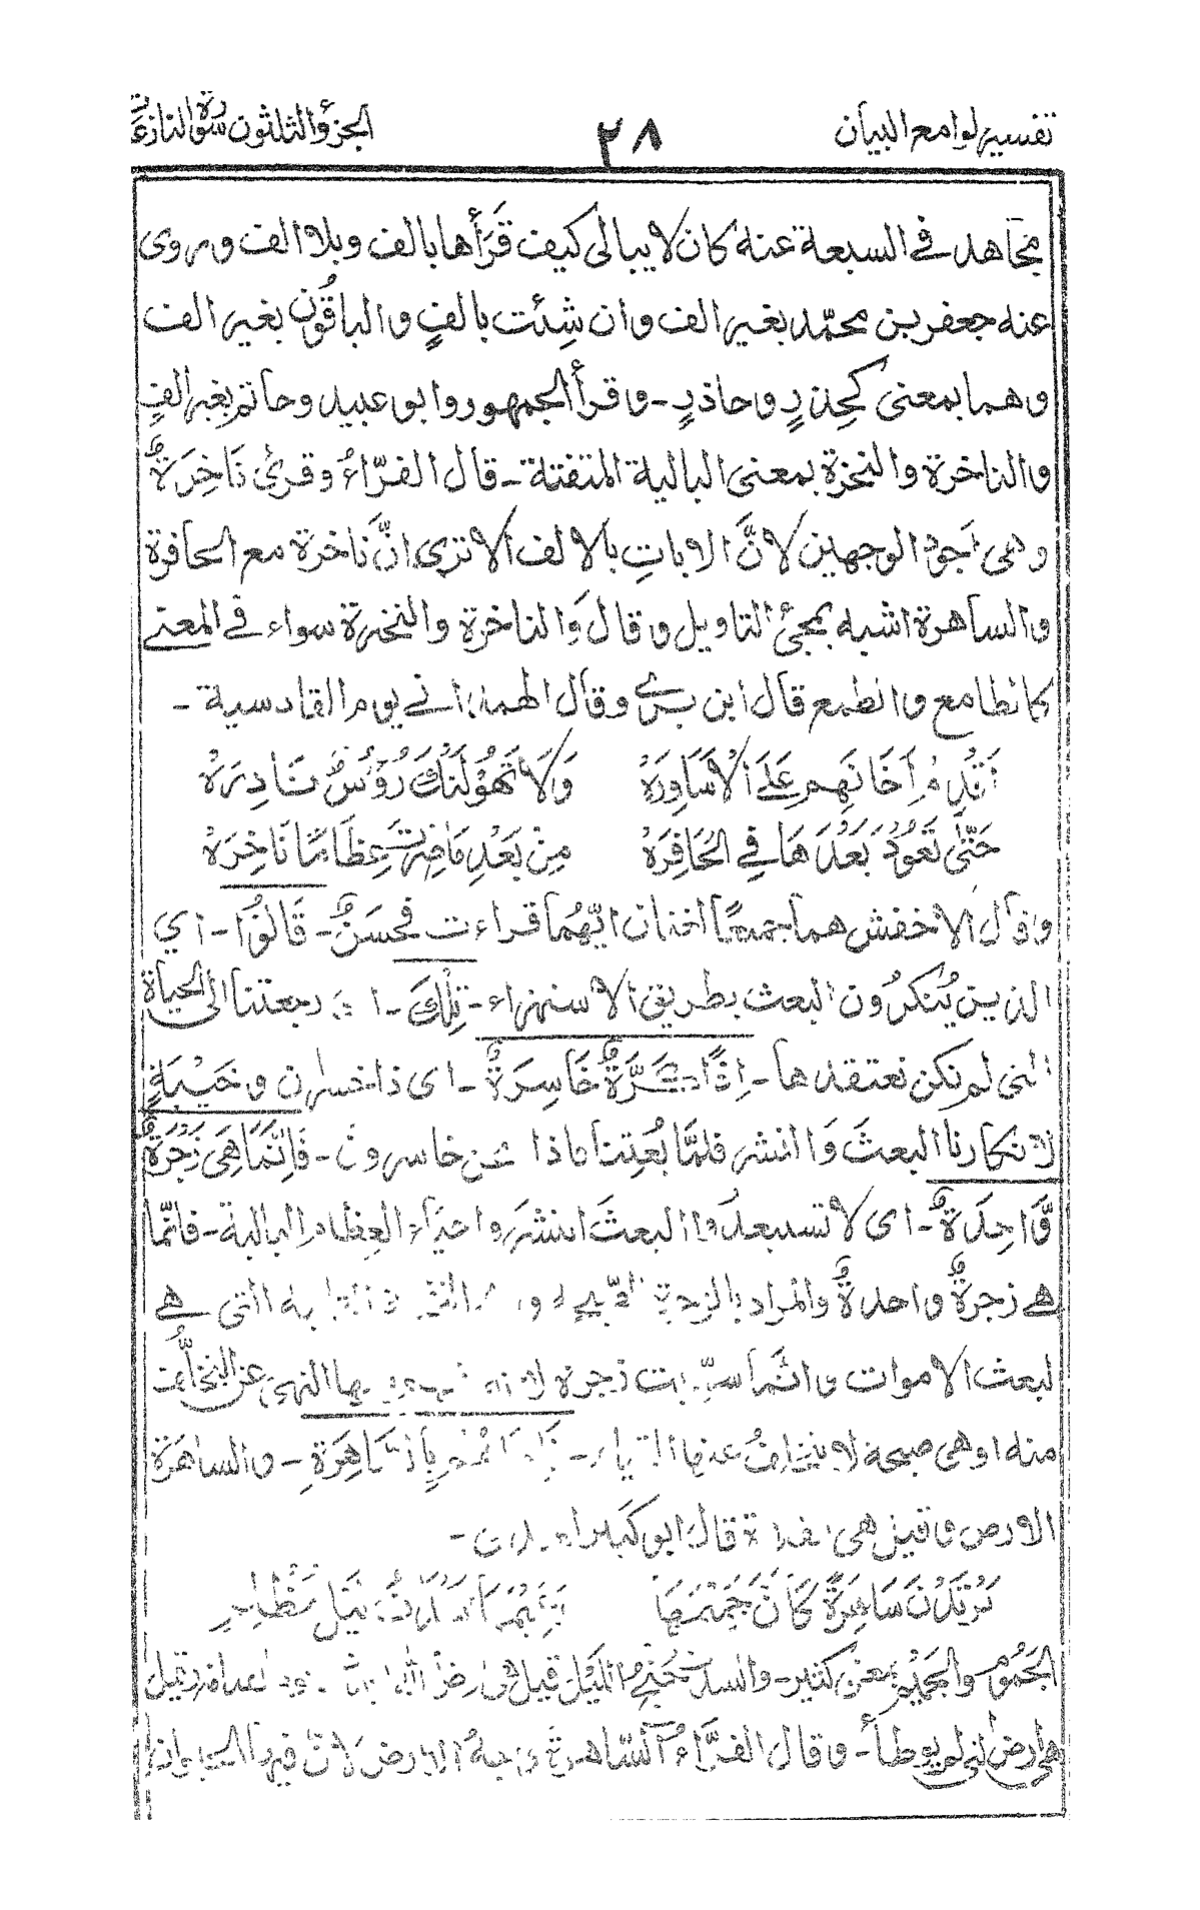 تفسير لوامع البيان ٢٨ الجزؤ الثلثون سورة النازعات
مجاهد في السبعة عنه كان لا يبالى كيف قَرَأها بالف وبلا الف وروى
عنه جعفر بن محمّد بغير الف وان شِئت بالفٍ والباقُون بغير الف
وهما بمعنى كحِذرٍ وحاذرٍ - وقرأ الجمهور وابو عبيد وحاتم بغير الفٍ
والناخرة والنخرة بمعنى البالية المتفتة - قال الفرّاءُ وقرئ نَاخِرَةٌ
وهى اجود الوجهين لانَّ الايات بالالف الا ترى انَّ ناخرة مع الحافرة
والساهرة اشبه بمجئ التاويل وقال وَالناخرة والنخرة سواء في المعنے
كالطامع والطمع قال ابن بري وقال الهمدانے يوم القادسية -
اَقْدِمْ اَخَا نَهِمٍ عَلَى الْاَسَاوِرَهْ وَلَا تَهُوْلَنْكَ رُؤُسٌ نَادِرَهْ
حَتّٰى تَعُوْدَ بَعْدَهَا فِي الحَافِرَهْ مِنْ بَعْدِ مَا صِرتَ عِظَامًا نَاخِرَهْ
وقال الاخفش هما جميعًا لغتان ايّهُما قراءت فحَسَنٌ - قَالُوْا - اي
الذين يُنكرُون البعث بطريق الاستهزاء - تِلْكَ - اى رجعتنا الى الحياة
التى لم نكن نعتقدها - اِذًا كَرَّةٌ خَاسِرَةٌ - اى ذا خسران وخَيْبةٍ
لانكارنا البعثَ وَالنشر فلمَّا بُعِثنا فاذا نحن خاسرون - فَاِنَّمَا هِىَ زَجْرَةٌ
وَّاحِدَةٌ - اى لا تستبعدوا البعثَ والنشر واحياء العِظام البالية - فانمّا
هے زجرةٌ واحدةٌ والمراد بالزجرة الصّيحة والنفخة الثانية التى هے
لبعث الاموات وانّما سمّيت زجرة لانه يفهم بها النهى عن التخلّف
منه او هى صيحة لا يتخلفُ عنها القيام - فَاِذَا هُمْ بِالسَّاهِرَةِ - والساهرة
الارض وقيل هى الفلاة قال ابو كبير
يَرْتَدْنَ سَاهِرَةً كَاَنَّ جَمِيْمَهَا
الجَمُوم والجَمِيْم بمعنى كثير - قيل هى ارض وقيل
هى ارض لم يوطأ - وقال الفَرَّاءُ السّاهرة وجهُ الارض لانّ فيها